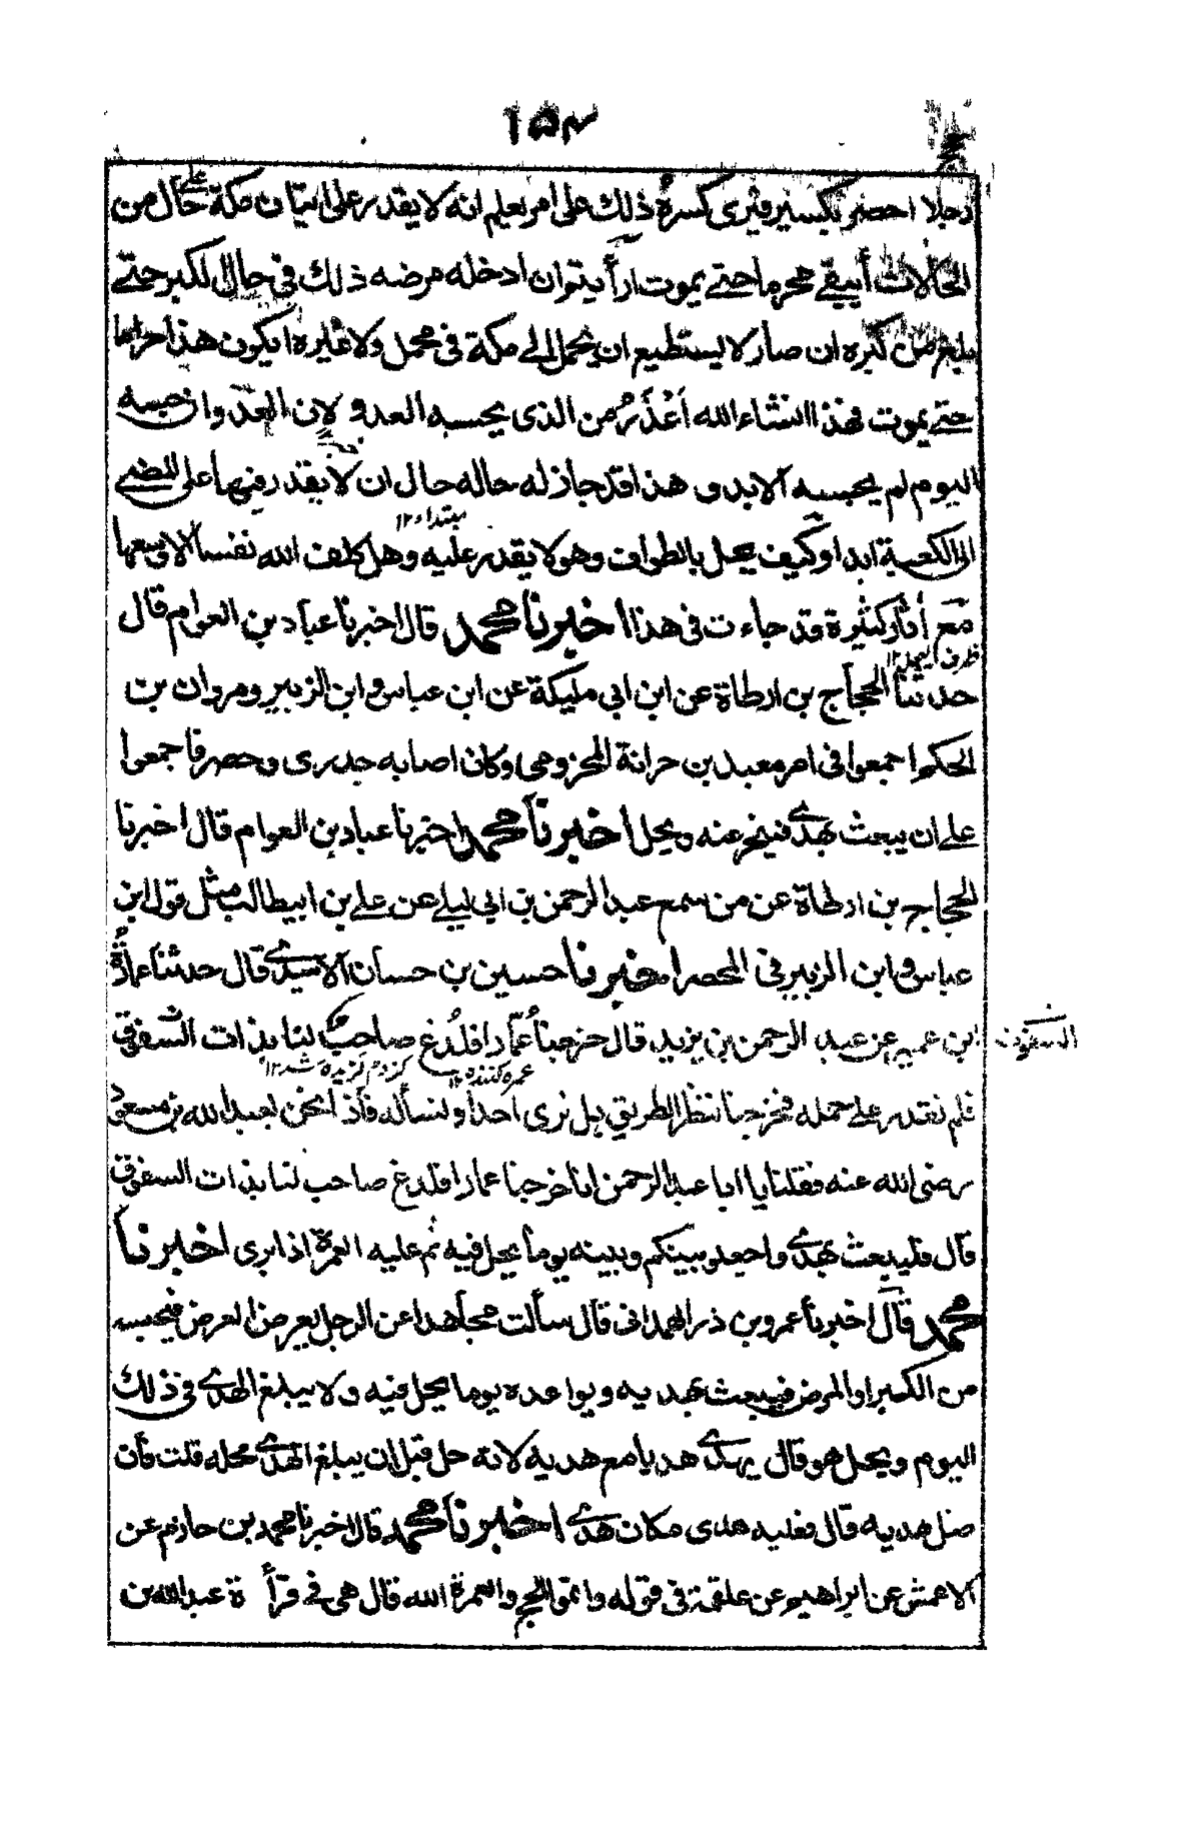 ١٥٣
رجلا احضر بكسير فترى كسره ذلك على امر يعلم انه لا يقدر على اتيان مكة على حال من
الحالات أيبقى محرما حتى يموت ارأيتوان ادخله مرضه ذلك فى حال لكبر حتى
يبلغ من كبره ان صار لا يستطيع ان يحمل الى مكة فى محمل ولا غيره ايكون هذا حراما
حتى يموت فهذا انشاء الله أعذر من الذى يحبسه العدو لان العدو ان حبسه
اليوم لم يحبسه الابد و هذا قد جاز له حاله حال ان لا يقدر فيها على المضى
الى الكعبة ابدا وكيف يحل بالطواف وهو لا يقدر عليه وهل كلف الله نفسا الا وسعها
مبتداء ١٢
مع أثار كثيرة قد جاءت فى هذا اخبرنا محمد قال اخبرنا عباد بن العوام قال
ظرف ١٢
حدثنا الحجاج بن ارطاة عن ابن ابي مليكة عن ابن عباس و ابن الزبير ومروان بن
الحكم اجمعوا فى امر معبد بن حرانة المخزومى وكان اصابه جدرى وحصر فاجمعوا
على ان يبعث بهدى فينحر عنه ويحل اخبرنا محمد اخبرنا عباد بن العوام قال اخبرنا
الحجاج بن ارطاة عن من سمع عبد الرحمن بن ابى ليلى عن على بن ابيطالب مثل قول ابن
عباس و ابن الزبير فى المحصر اخبرنا حسين بن حسان الاسيدى قال حدثنا عمارة
ابن عمير عن عبد الرحمن بن يزيد قال خرجنا عمّارا فلُدغ صاحب لنا بذات الشفوق
السفوف
عمره كننده ١٢ كزدم گزيده شد ١٢
فلم نقدر على حمله فخرجنا ننظر الطريق هل نرى احدا ولنسأله فاذا نحن بعبد الله بن مسعود
رضى الله عنه فقلنا يا ابا عبد الرحمن انا خرجنا عمارا فلدغ صاحب لنا بذات السفوق
قال فليبعث بهدى واجعلو بينكم وبينه يوما يحل فيه ثم عليه العمرة اذا برى اخبرنا
محمد قال اخبرنا عمرو بن ذر الهمدانى قال سألت مجاهدا عن الرجل يعرض العرض فيحبسه
من الكسر او المرض فيبعث بهديه و يواعده يوما يحل فيه ولا يبلغ الهدى فى ذلك
اليوم ويحل هو قال يهدى هديا مع هديه لانه حل قبل ان يبلغ الهدى محله قلت فأن
ضل هديه قال فعليه هدى مكان هدى اخبرنا محمد قال اخبرنا محمد بن حازم عن
الاعمش عن ابراهيم عن علقمة فى قوله واتموا الحج والعمرة الله قال هى فى قرأ ة عبد الله بن